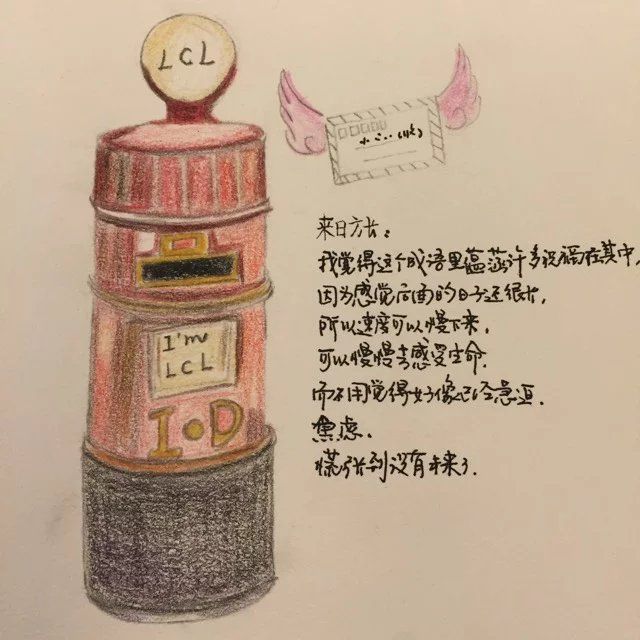 LCL
I'm
LCL
I•D
来日方长:
我觉得这个成语里蕴涵许多祝福在其中,
因为感觉后面的日子还很长,
所以速度可以慢下来,
可以慢慢去感受生命.
而不用觉得好像已经急迫.
焦虑.
慌张到没有未来了.